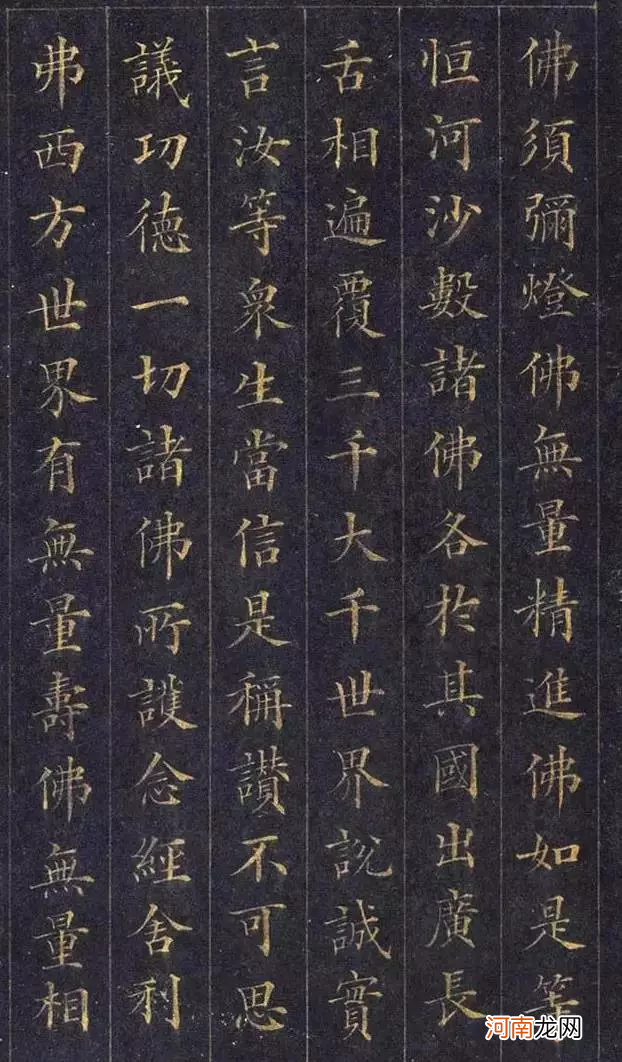 佛須彌燈佛無量精進佛如是等
恒河沙數諸佛各於其國出廣長
舌相遍覆三千大千世界說誠實
言汝等衆生當信是稱讚不可思
議功德一切諸佛所護念經舍利
弗西方世界有無量壽佛無量相
河南龙网